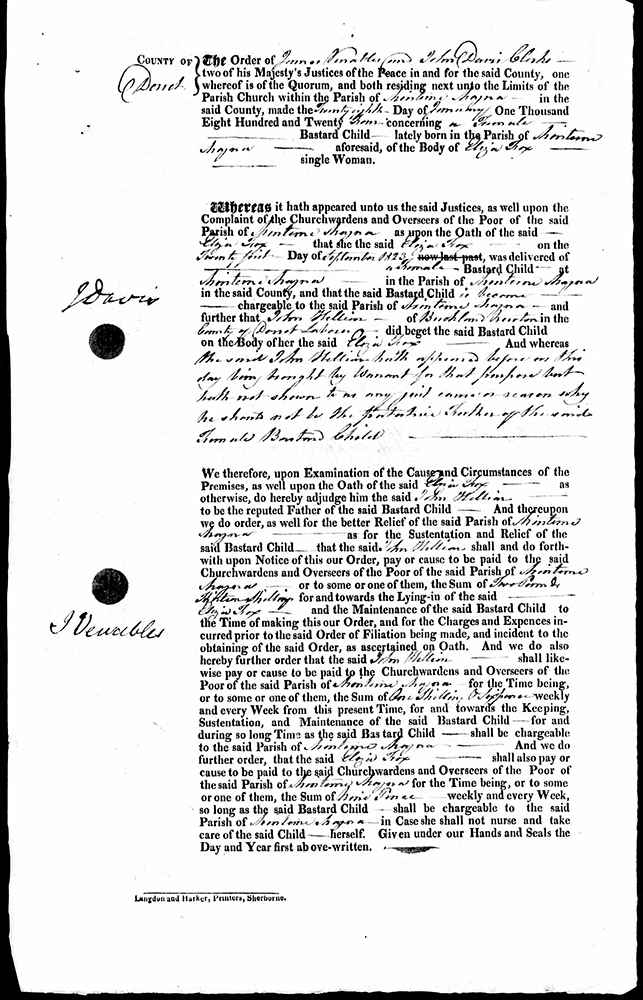 COUNTY OF } The Order of James Venables and John Davis Clerks —
Dorset two of his Majesty's Justices of the Peace in and for the said County, one
whereof is of the Quorum, and both residing next unto the Limits of the
Parish Church within the Parish of Minterne Magna — in the
said County, made the Twenty eighth Day of January One Thousand
Eight Hundred and Twenty Four concerning a Female —
— Bastard Child — lately born in the Parish of Minterne
Magna — aforesaid, of the Body of Eliza Fox —
— single Woman.
Whereas it hath appeared unto us the said Justices, as well upon the
Complaint of the Churchwardens and Overseers of the Poor of the said
Parish of Minterne Magna as upon the Oath of the said —
Eliza Fox — that she the said Eliza Fox — on the
Twenty first Day of September 1823, now last past, was delivered of
— a Female — Bastard Child — at
Minterne Magna — in the Parish of Minterne Magna
in the said County, and that the said Bastard Child is become —
— chargeable to the said Parish of Minterne Magna — and
further that John Hellier — of Buckland Newton in the
County of Dorset Laborer — did beget the said Bastard Child
on the Body of her the said Eliza Fox — And whereas
the said John Hellier hath appeared before us this
day being brought by Warrant for that purpose but
hath not shewn to us any just cause or reason why
he should not be the putative Father of the said
Female Bastard Child —
J Davis
We therefore, upon Examination of the Cause and Circumstances of the
Premises, as well upon the Oath of the said Eliza Fox — as
otherwise, do hereby adjudge him the said John Hellier —
to be the reputed Father of the said Bastard Child — And thereupon
we do order, as well for the better Relief of the said Parish of Minterne
Magna — as for the Sustentation and Relief of the
said Bastard Child — that the said John Hellier shall and do forth-
with upon Notice of this our Order, pay or cause to be paid to the said
Churchwardens and Overseers of the Poor of the said Parish of Minterne
Magna — or to some or one of them, the Sum of Two Pounds
Shillings for and towards the Lying-in of the said —
Eliza Fox — and the Maintenance of the said Bastard Child to
the Time of making this our Order, and for the Charges and Expences in-
curred prior to the said Order of Filiation being made, and incident to the
obtaining of the said Order, as ascertained on Oath. And we do also
hereby further order that the said John Hellier — shall like-
wise pay or cause to be paid to the Churchwardens and Overseers of the
Poor of the said Parish of Minterne Magna — for the Time being,
or to some or one of them, the Sum of One Shilling & Sixpence weekly
and every Week from this present Time, for and towards the Keeping,
Sustentation, and Maintenance of the said Bastard Child — for and
during so long Time as the said Bastard Child — shall be chargeable
to the said Parish of Minterne Magna — And we do
further order, that the said Eliza Fox — shall also pay or
cause to be paid to the said Churchwardens and Overseers of the Poor of
the said Parish of Minterne Magna for the Time being, or to some
or one of them, the Sum of Nine Pence — weekly and every Week,
so long as the said Bastard Child — shall be chargeable to the said
Parish of Minterne Magna — in Case she shall not nurse and take
care of the said Child — herself. Given under our Hands and Seals the
Day and Year first above-written.
J Venables
Langdon and Harker, Printers, Sherborne.